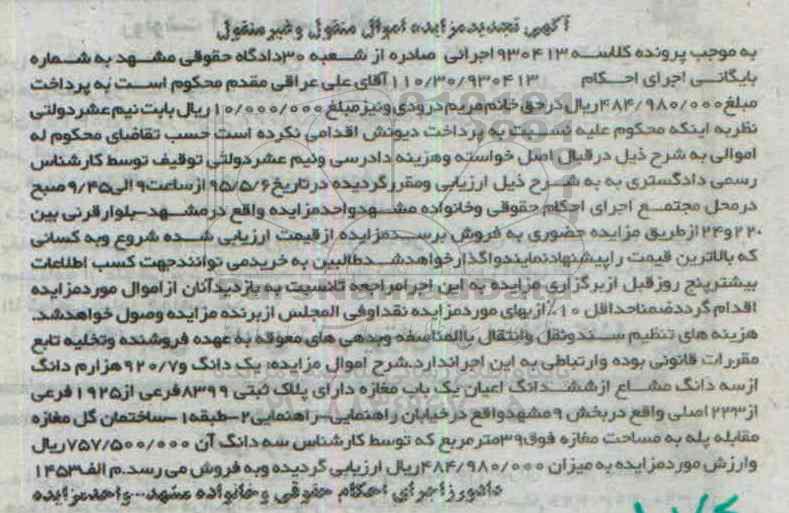 آگهی تجدید مزایده اموال منقول و غیر منقول
به موجب پرونده کلاسه ۹۳۰۴۱۳ اجرائی صادره از شعبه ۳۰ دادگاه حقوقی مشهد به شماره
بایگانی اجرای احکام ۱۱۰/۳۰/۹۳۰۴۱۳ آقای علی عراقی مقدم محکوم است به پرداخت
مبلغ ۴۸۴/۹۸۰/۰۰۰ ریال در حق خانم مریم درودی و نیز مبلغ ۱۰/۰۰۰/۰۰۰ ریال بابت نیم عشر دولتی
نظر به اینکه محکوم علیه نسبت به پرداخت دیونش اقدامی نکرده است حسب تقاضای محکوم له
اموالی به شرح ذیل در قبال اصل خواسته و هزینه دادرسی و نیم عشر دولتی توقیف توسط کارشناس
رسمی دادگستری به به شرح ذیل ارزیابی و مقرر گردیده در تاریخ ۹۵/۵/۶ از ساعت ۹ الی ۹/۴۵ صبح
در محل مجتمع اجرای احکام حقوقی وخانواده مشهد واحد مزایده واقع در مشهد-بلوار قرنی بین
۲۲۰ و ۲۴ از طریق مزایده حضوری به فروش برسد مزایده از قیمت ارزیابی شده شروع وبه کسانی
که بالاترین قیمت را پیشنهاد نمایند واگذار خواهد شد طالبین به خرید می توانند جهت کسب اطلاعات
بیشتر پنج روز قبل از برگزاری مزایده به این اجرا مراجعه تا نسبت به بازدید آنان از اموال مورد مزایده
اقدام گردد ضمنا حداقل ۱۰٪ از بهای مورد مزایده نقدا و فی المجلس از برنده مزایده وصول خواهد شد.
هزینه های تنظیم سند و نقل وانتقال بالمناسفه و بدهی های معوقه به عهده فروشنده و تخلیه تابع
مقررات قانونی بوده و ارتباطی به این اجرا ندارد. شرح اموال مزایده: یک دانگ و ۹۲۰/۷ هزارم دانگ
از سه دانگ مشاع از ششدانگ اعیان یک باب مغازه دارای پلاک ثبتی ۸۳۹۹ فرعی از ۱۹۲۵ فرعی
از ۲۲۳ اصلی واقع در بخش ۹ مشهد واقع در خیابان راهنمایی-راهنمایی ۲-طبقه ۱-ساختمان گل مغازه
مقابله پله به مساحت مغازه فوق ۳۹ متر مربع که توسط کارشناس سه دانگ آن ۷۵۷/۵۰۰/۰۰۰ ریال
وارزش مورد مزایده به میزان ۴۸۴/۹۸۰/۰۰۰ ریال ارزیابی گردیده وبه فروش می رسد. م الف ۱۴۵۳
دادورز اجرای احکام حقوقی و خانواده مشهد-واحد مزایده